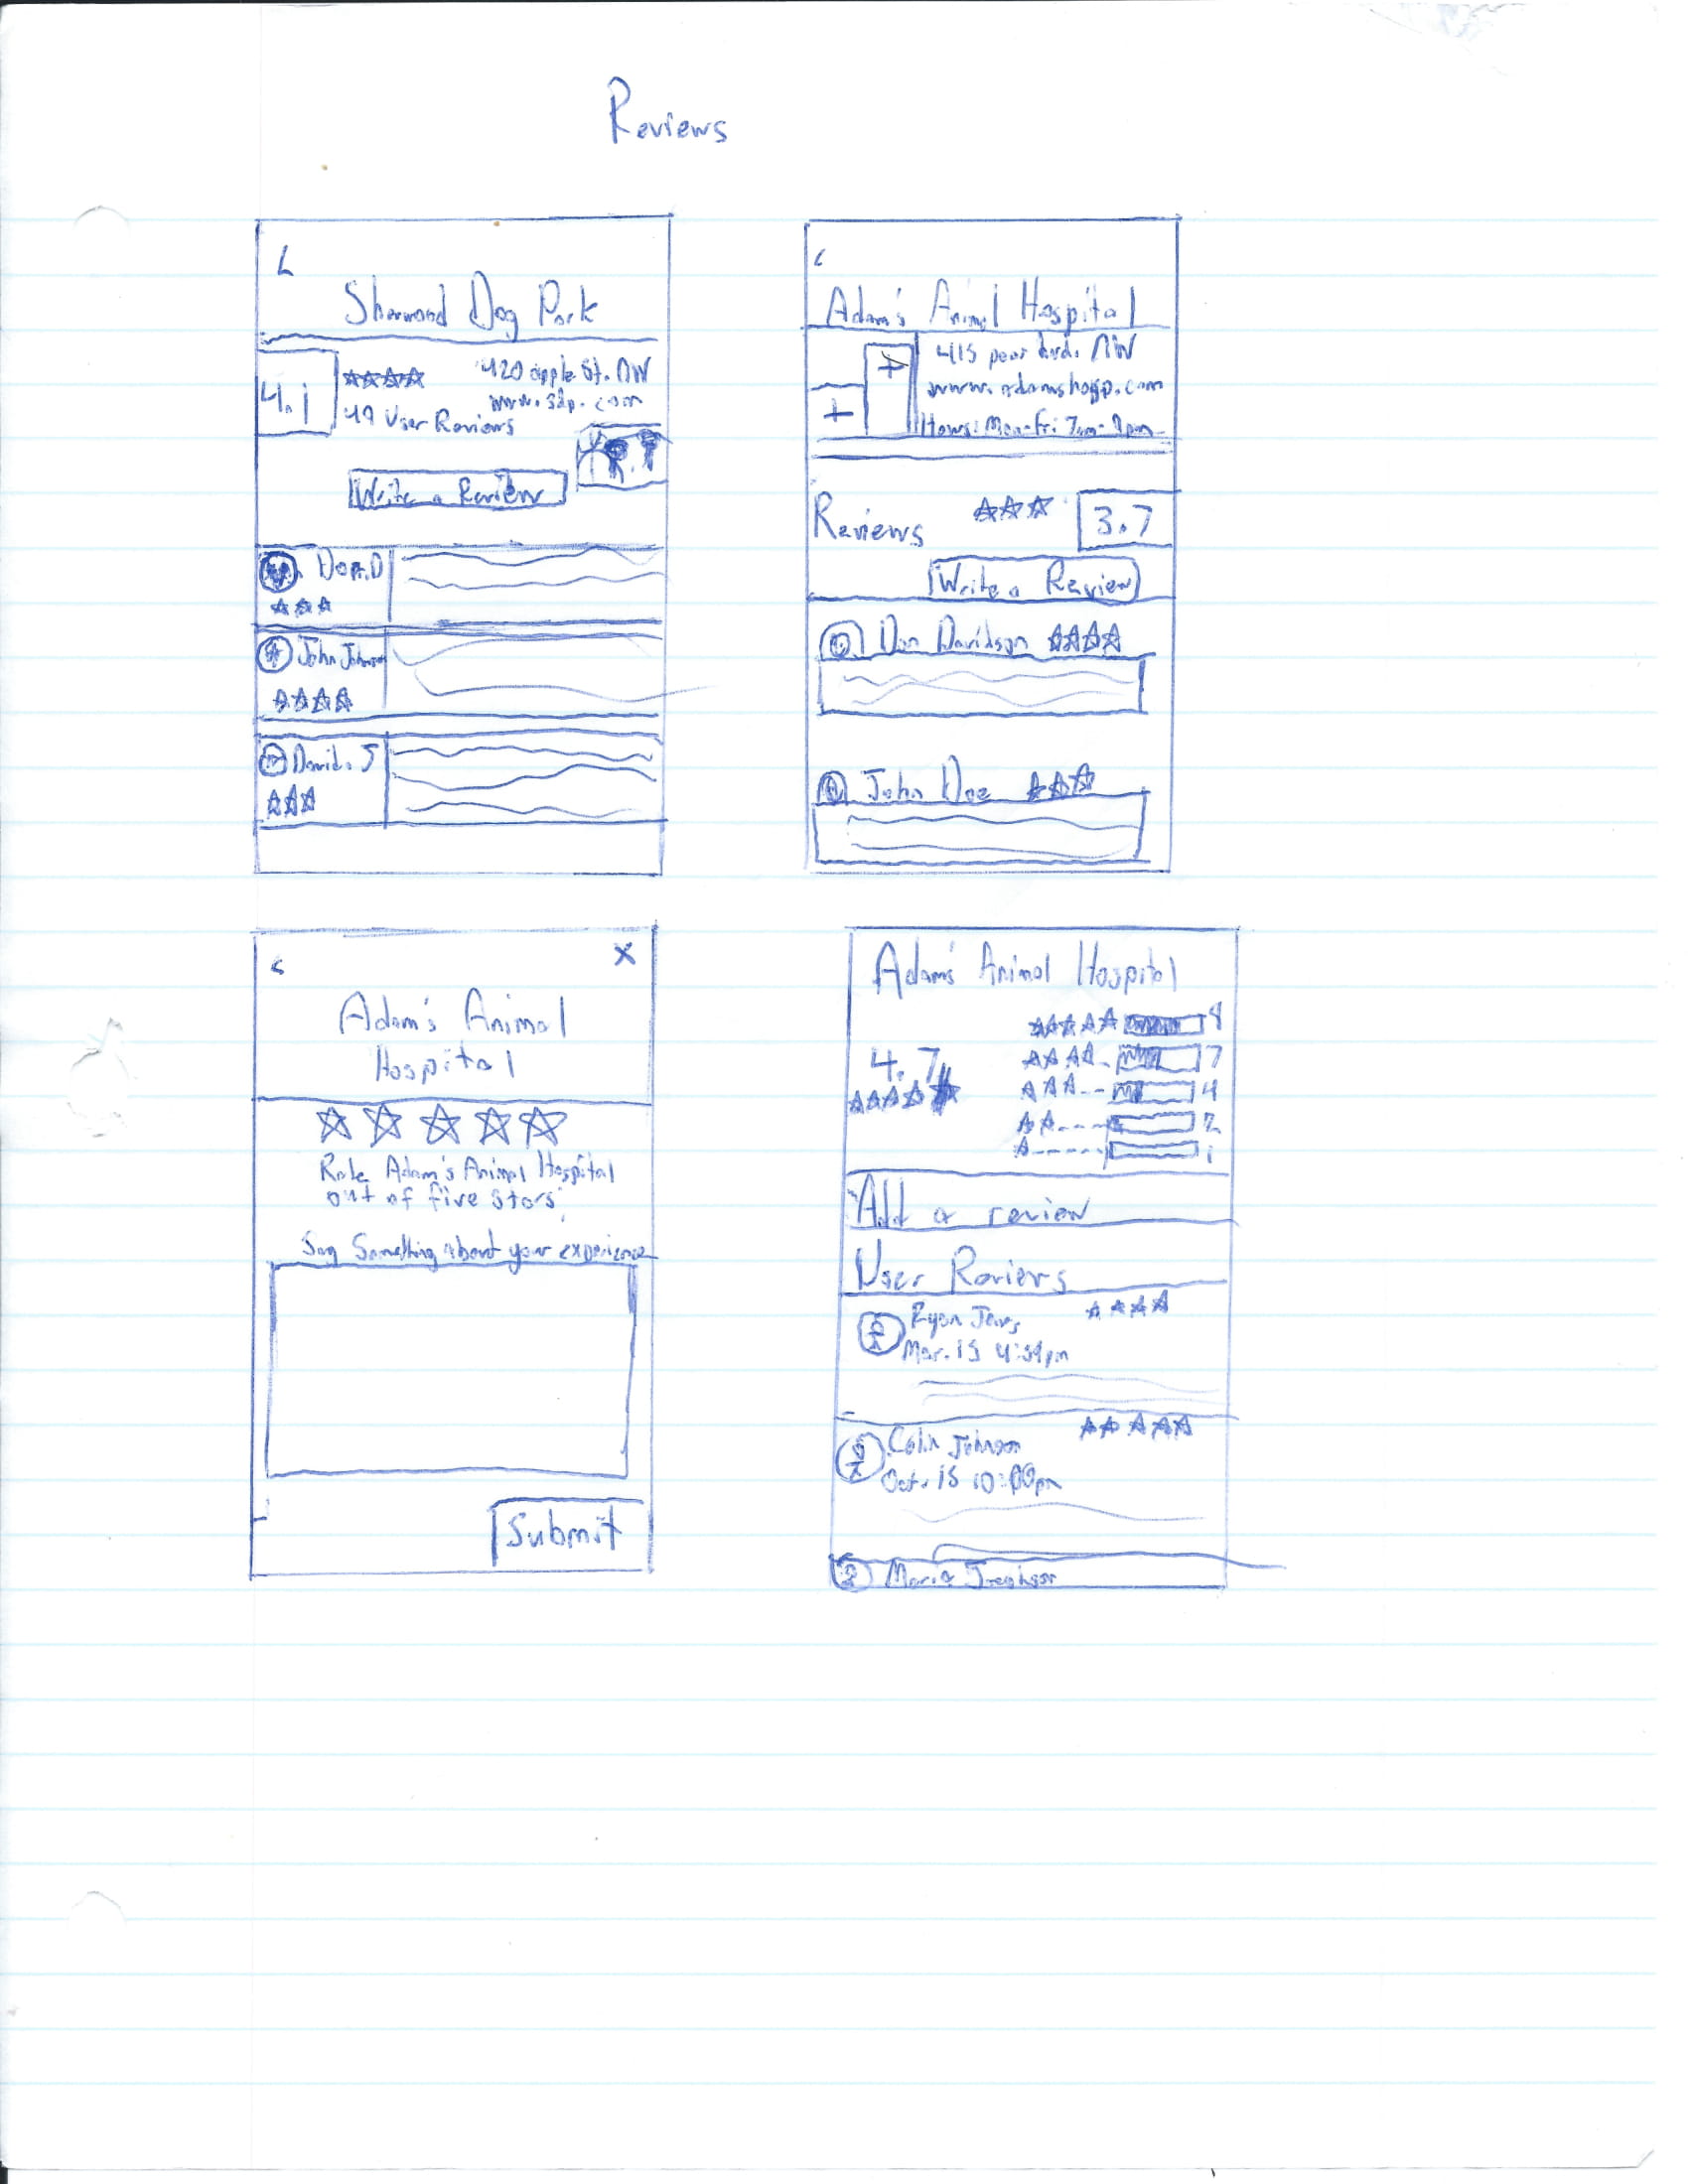 Reviews
Sherwood Dog Park
4.1
420 apple St. NW
www.sdp.com
49 User Reviews
Write a Review
Don.D
John Johnson
David. S
Adam's Animal Hospital
415 pear blvd. NW
www.adamshosp.com
Hours: Mon-Fri 7am-9pm
Reviews
3.7
Write a Review
Don Davidson
John Doe
X
Adam's Animal
Hospital
Rate Adam's Animal Hospital
out of five stars.
Say Something about your experience
Submit
Adam's Animal Hospital
4.7
8
7
4
2
1
Add a review
User Reviews
Ryan
Mar. 15 4:34pm
Colin Johnson
Oct. 15 10:00pm
Maria